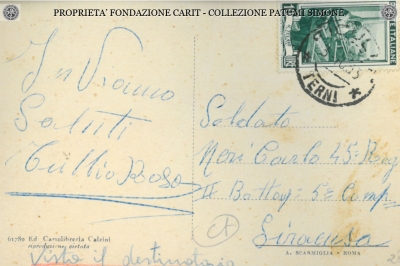 PROPRIETA' FONDAZIONE CARIT - COLLEZIONE PATUMI SIMONE
Inviamo
Saluti
Tullio Rosa
61780 Ed Cartolibreria Calzini
riproduzione vietata
Visto il
TERNI
Soldato
Nori Carlo 45° Reg
II Battag: 5° Comp
Siracusa
A. SCARNIGLIA - ROMA